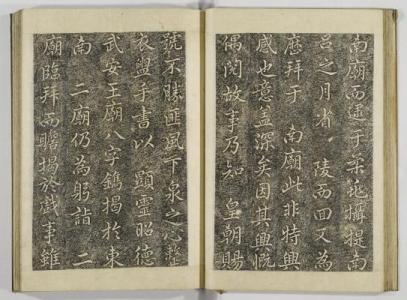 南廟而逮于柔兆攝提南
呂之月省 陵而回又為
歷拜于 南廟此非特興
感也意盖深矣因其興慨
偶閱故事乃知 皇朝賜
號不勝匪風下泉之心整
衣盥手書以 顯靈昭德
武安王廟八字鐫揭於東
南 二廟仍為躬詣 二
廟臨拜而瞻揭於戲事雖